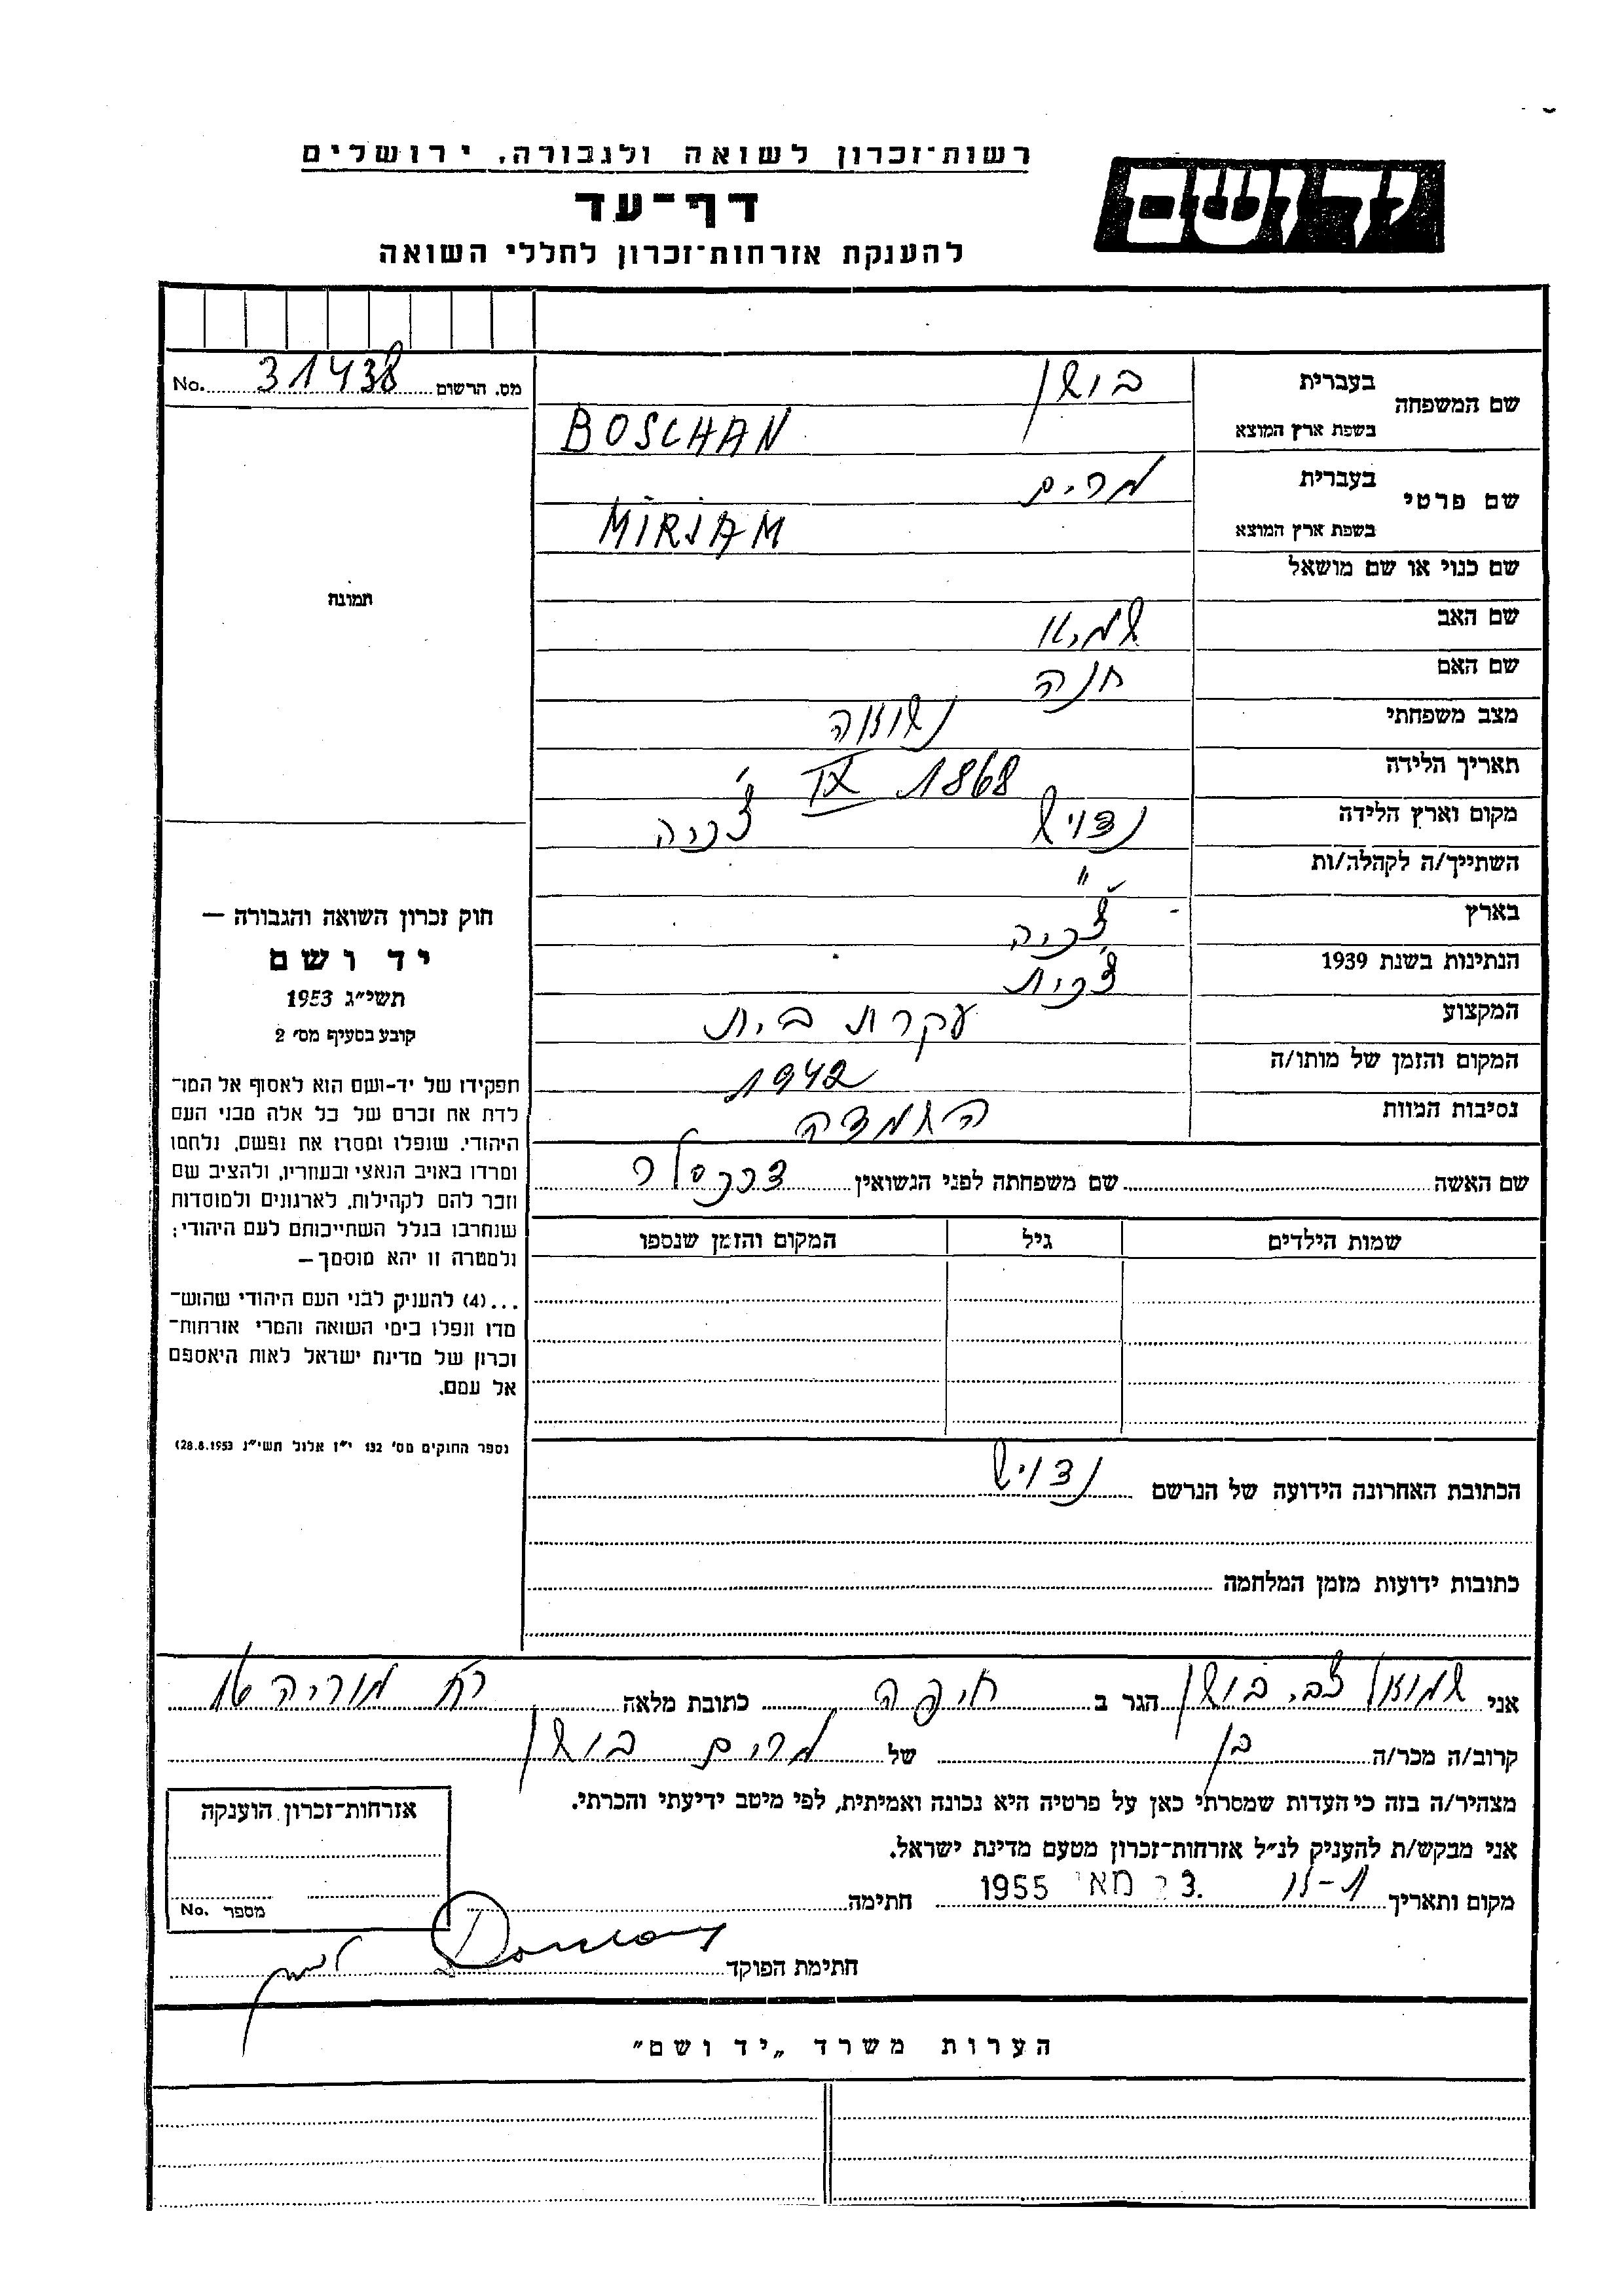 רשות-זכרון לשואה ולגבורה, ירושלים
יד ושם
דף-עד
להענקת אזרחות-זכרון לחללי השואה
מס. הרשום 31438 No.
שם המשפחה
בעברית בושן
בשפת ארץ המוצא BOSCHAN
שם פרטי
בעברית מרים
בשפת ארץ המוצא MIRJAM
שם כנוי או שם מושאל
שם האב
שם האם חנה
מצב משפחתי נשואה
תאריך הלידה 1868 IX
מקום וארץ הלידה צ'כיה
השתייך/ה לקהלה/ות "
בארץ צ'כיה
הנתינות בשנת 1939 צ'כית
המקצוע עקרת בית
המקום והזמן של מותו/ה 1942
נסיבות המוות השמדה
שם האשה שם משפחתה לפני הנשואין
שמות הילדים גיל המקום והזמן שנספו
הכתובת האחרונה הידועה של הנרשם
כתובות ידועות מזמן המלחמה
תמונה
חוק זכרון השואה והגבורה —
יד ושם
תשי"ג 1953
קובע בסעיף מס' 2
תפקידו של יד-ושם הוא לאסוף אל המו־
לדת את זכרם של כל אלה מבני העם
היהודי, שנפלו ומסרו את נפשם, נלחמו
ומרדו באויב הנאצי ובעוזריו, ולהציב שם
וזכר להם לקהילות, לארגונים ולמוסדות
שנחרבו בגלל השתייכותם לעם היהודי;
ולמטרה זו יהא מוסמך—
...(4) להעניק לבני העם היהודי שהוש־
מדו ונפלו בימי השואה והמרי אזרחות־
זכרון של מדינת ישראל לאות היאספם
אל עמם.
(ספר החוקים מס' 132 י"ז אלול תשי"ג 28.8.1953)
אני שמואל צבי בושן הגר ב חיפה כתובת מלאה רח מוריה 16
קרוב/ה מכר/ה בן של מרים בושן
מצהיר/ה בזה כי העדות שמסרתי כאן על פרטיה היא נכונה ואמיתית, לפי מיטב ידיעתי והכרתי.
אני מבקש/ת להעניק לנ"ל אזרחות-זכרון מטעם מדינת ישראל.
מקום ותאריך מאי 1955 חתימה
חתימת הפוקד
אזרחות-זכרון הוענקה
מספר No.
הערות משרד „יד ושם"